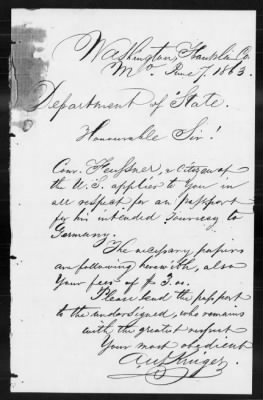 Washington, Franklin Co
Mo. June 7. 1863.
Department of State.
Honourable Sir!
Conr. Feussner, a Citizen of
the U.S. applies to You in
all respect for an passport
for his intended Journey to
Germany.
The necessary papers
are following herewith, also
Your fees of $ 3.00.
Please send the passport
to the undersigned, who remains
with the greatest respect
Your most obedient
Aug. Krüger